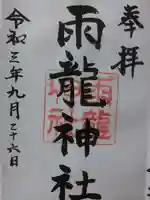 奉拝
雨龍神社
雨龍神社
令和三年九月二十六日